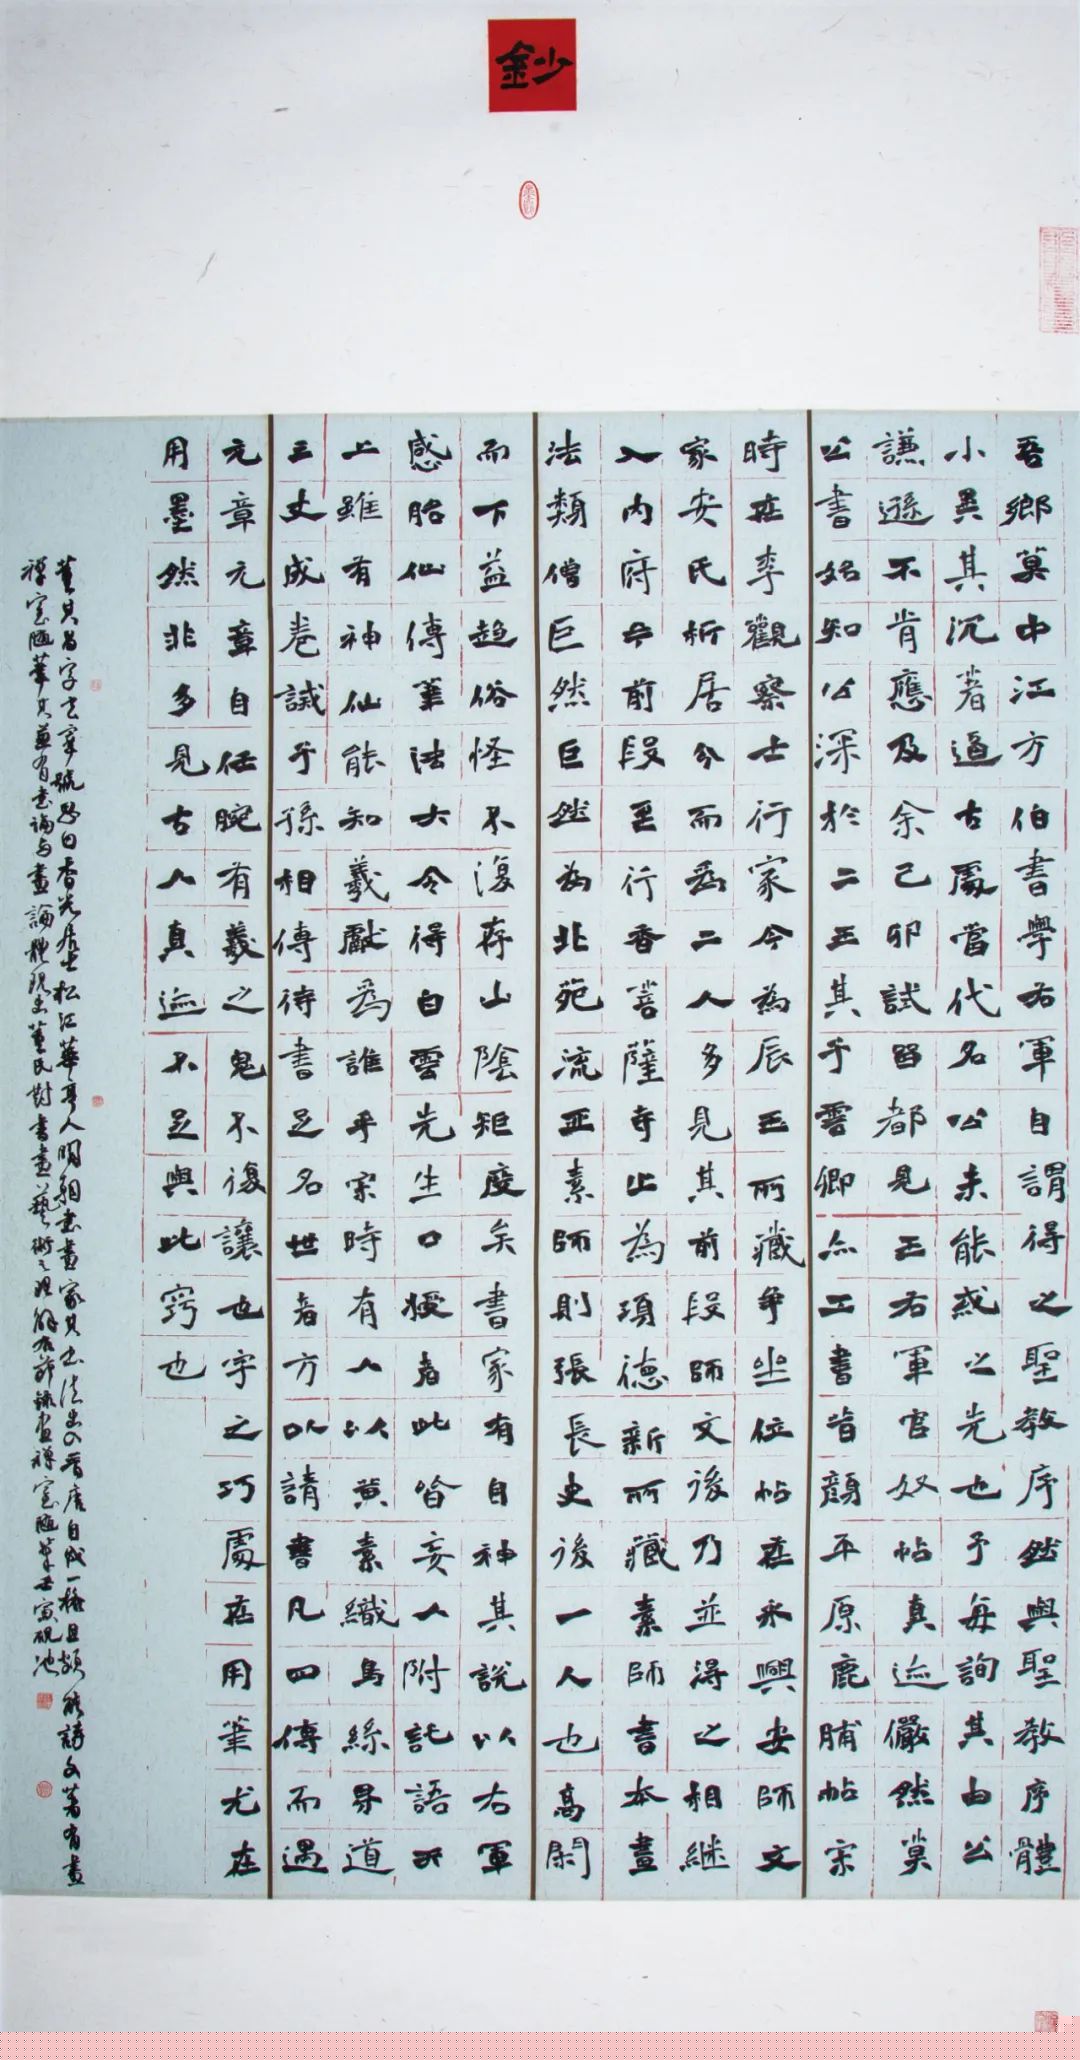 鈔
吾鄉莫中江方伯書學右軍自謂得之聖教序然與聖教序體
小異其沉著逼古處當代名公未能或之先也予每詢其由公
謙遜不肯應及余己卯試留都見王右軍官奴帖真迹儼然莫
公書始知公深於二王其子雲卿亦工書肯顏平原鹿脯帖宋
時在李觀察士行家今為辰玉所藏爭坐位帖在永興安師文
家安氏析居分而為二人多見其前段師文後乃並得之相繼
入內府今前段至行香菩薩寺止為項德新所藏素師書本畫
法類僧巨然巨然為北苑流亞素師則張長史後一人也高閑
而下益趨俗怪不復存山陰矩度矣書家有自神其說以右軍
感胎仙傳筆法大令得白雲先生口授者此皆妄人附託語天
上雖有神仙能知羲獻為誰乎宋時有人以黃素織烏絲界道
三丈成卷誡子孫相傳待書足名世者方以請書凡四傳而遇
元章元章自任腕有羲之鬼不復讓也字之巧處在用筆尤在
用墨然非多見古人真迹不足與此竅也
董其昌字玄宰號思白香光居士松江華亭人明朝書畫家其書法出入晉唐自成一格且頗能詩文著有畫
禪室隨筆其兼有書論與畫論體現出董氏對書畫藝術之理解右節錄畫禪室隨筆壬寅硯池